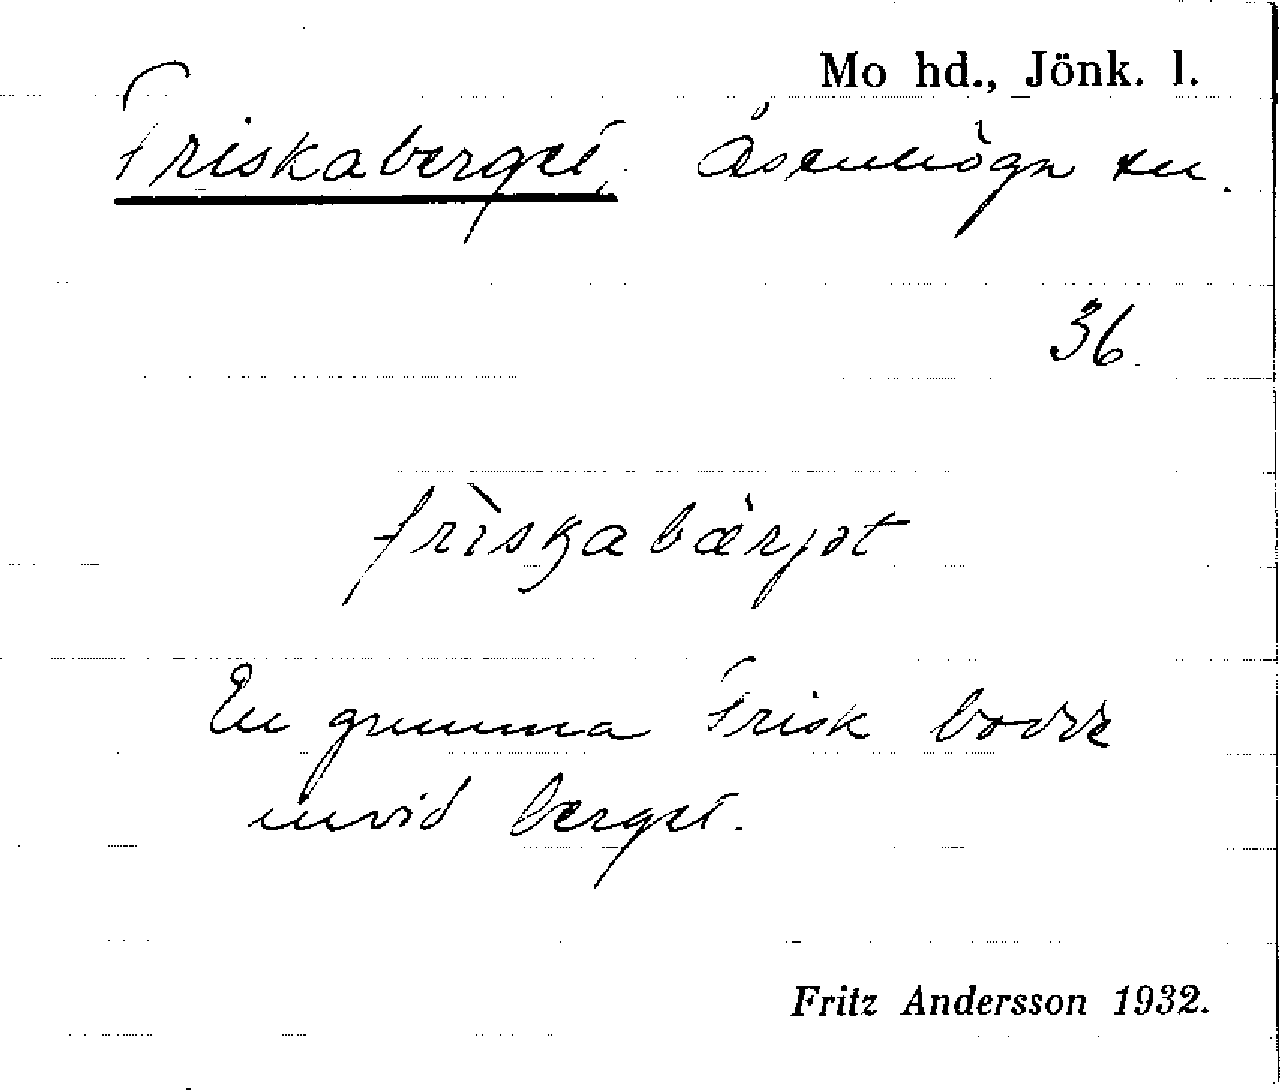 Mo hd., Jönk. l.
Friskaberget. Åsenhöga sn.
36.
frìskabä̀rjət
En gumma Frisk bodde
invid berget.
Fritz Andersson 1932.